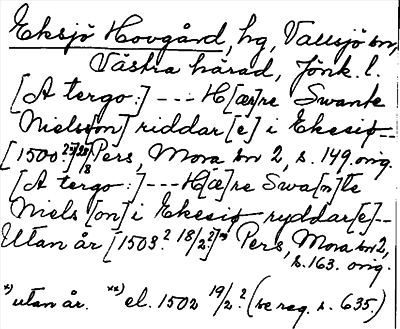 Eksjö Hovgård, hg, Vallsjö sn,
Västra härad, Jönk. l.
[A tergo:] --- H[ær]re Swante
Niels[on] riddar[e] i Ekesiø
[1500 ? /8 Pers, Mora sn 2, s. 149, orig.
[A tergo:] --- H[æ]re Swa[n]te
Niels[on] i Ekesiø ryddar[e] --
Utan år [1503? 18/2?] Pers, Mora sn 2,
s. 163. orig.
x) utan år. xx) el. 1502 19/2? (se reg. s. 635.)